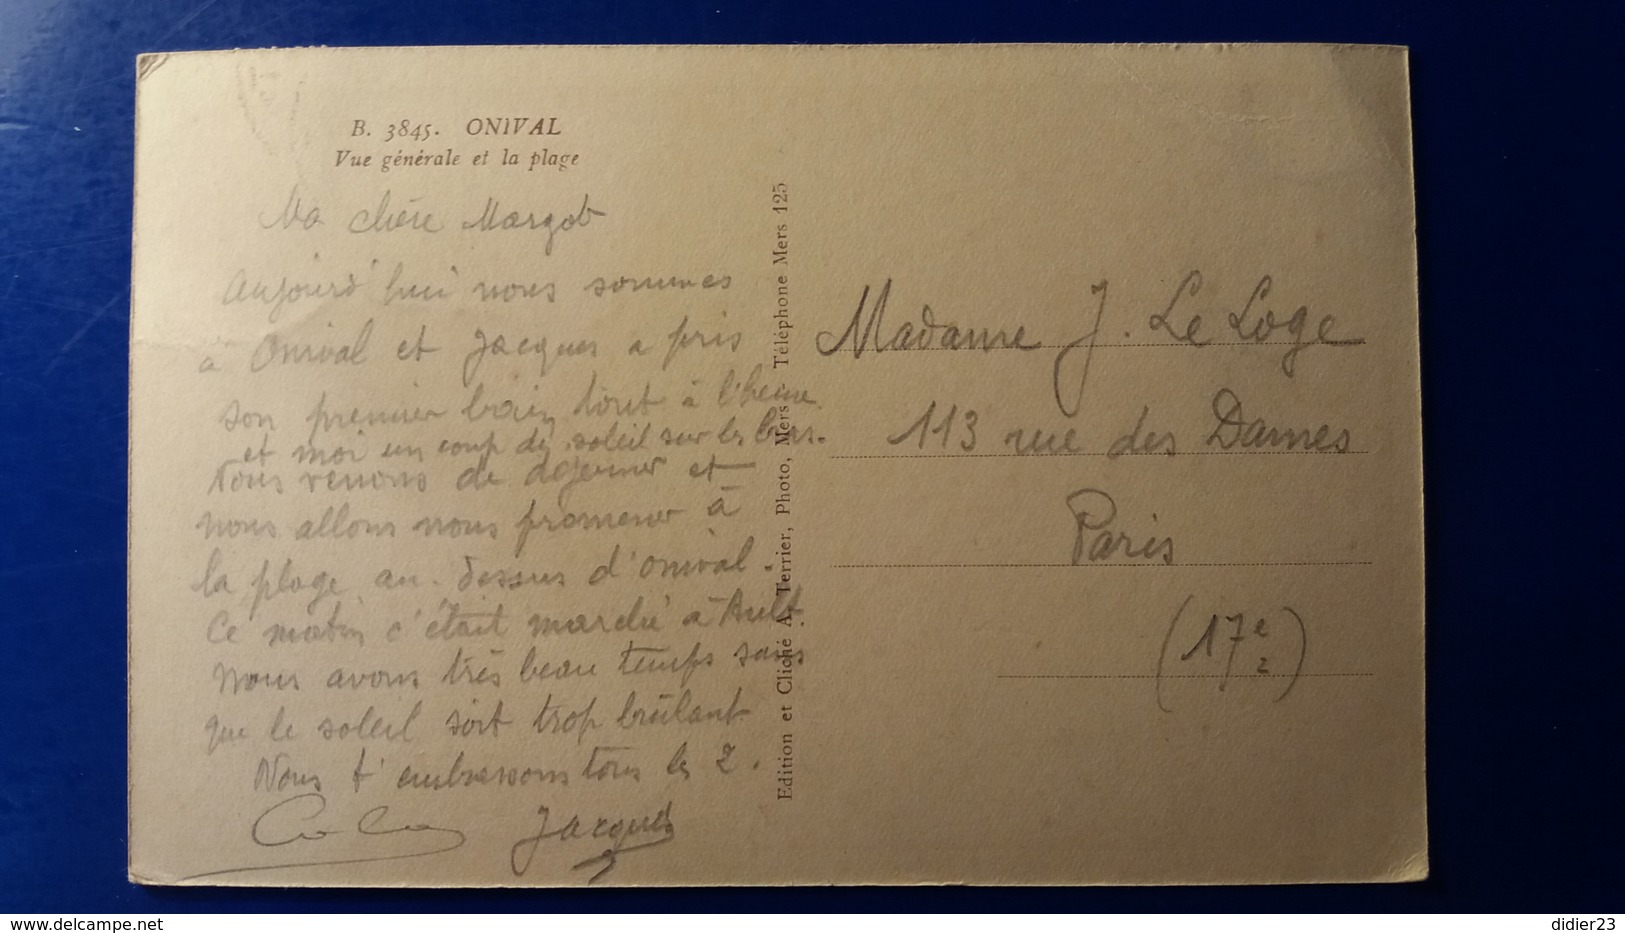 B. 3845. ONIVAL
Vue générale et la plage
Ma chère Margot
Aujourd'hui nous sommes
à Onival et Jacques a pris
son premier bain tout à l'heure
et moi un coup de soleil sur les bras.
Nous venons de déjeuner et
nous allons nous promener à
la plage au-dessus d'Onival.
Ce matin c'était marché à Ault
Nous avons très beau temps sans
que le soleil soit trop brûlant
Nous t'embrassons tous les 2.
Jacques
Edition et Cliché A. Terrier, Photo, Mers - Téléphone Mers 125
Madame J. Le Loge
113 rue des Dames
Paris
(17e)
didier23